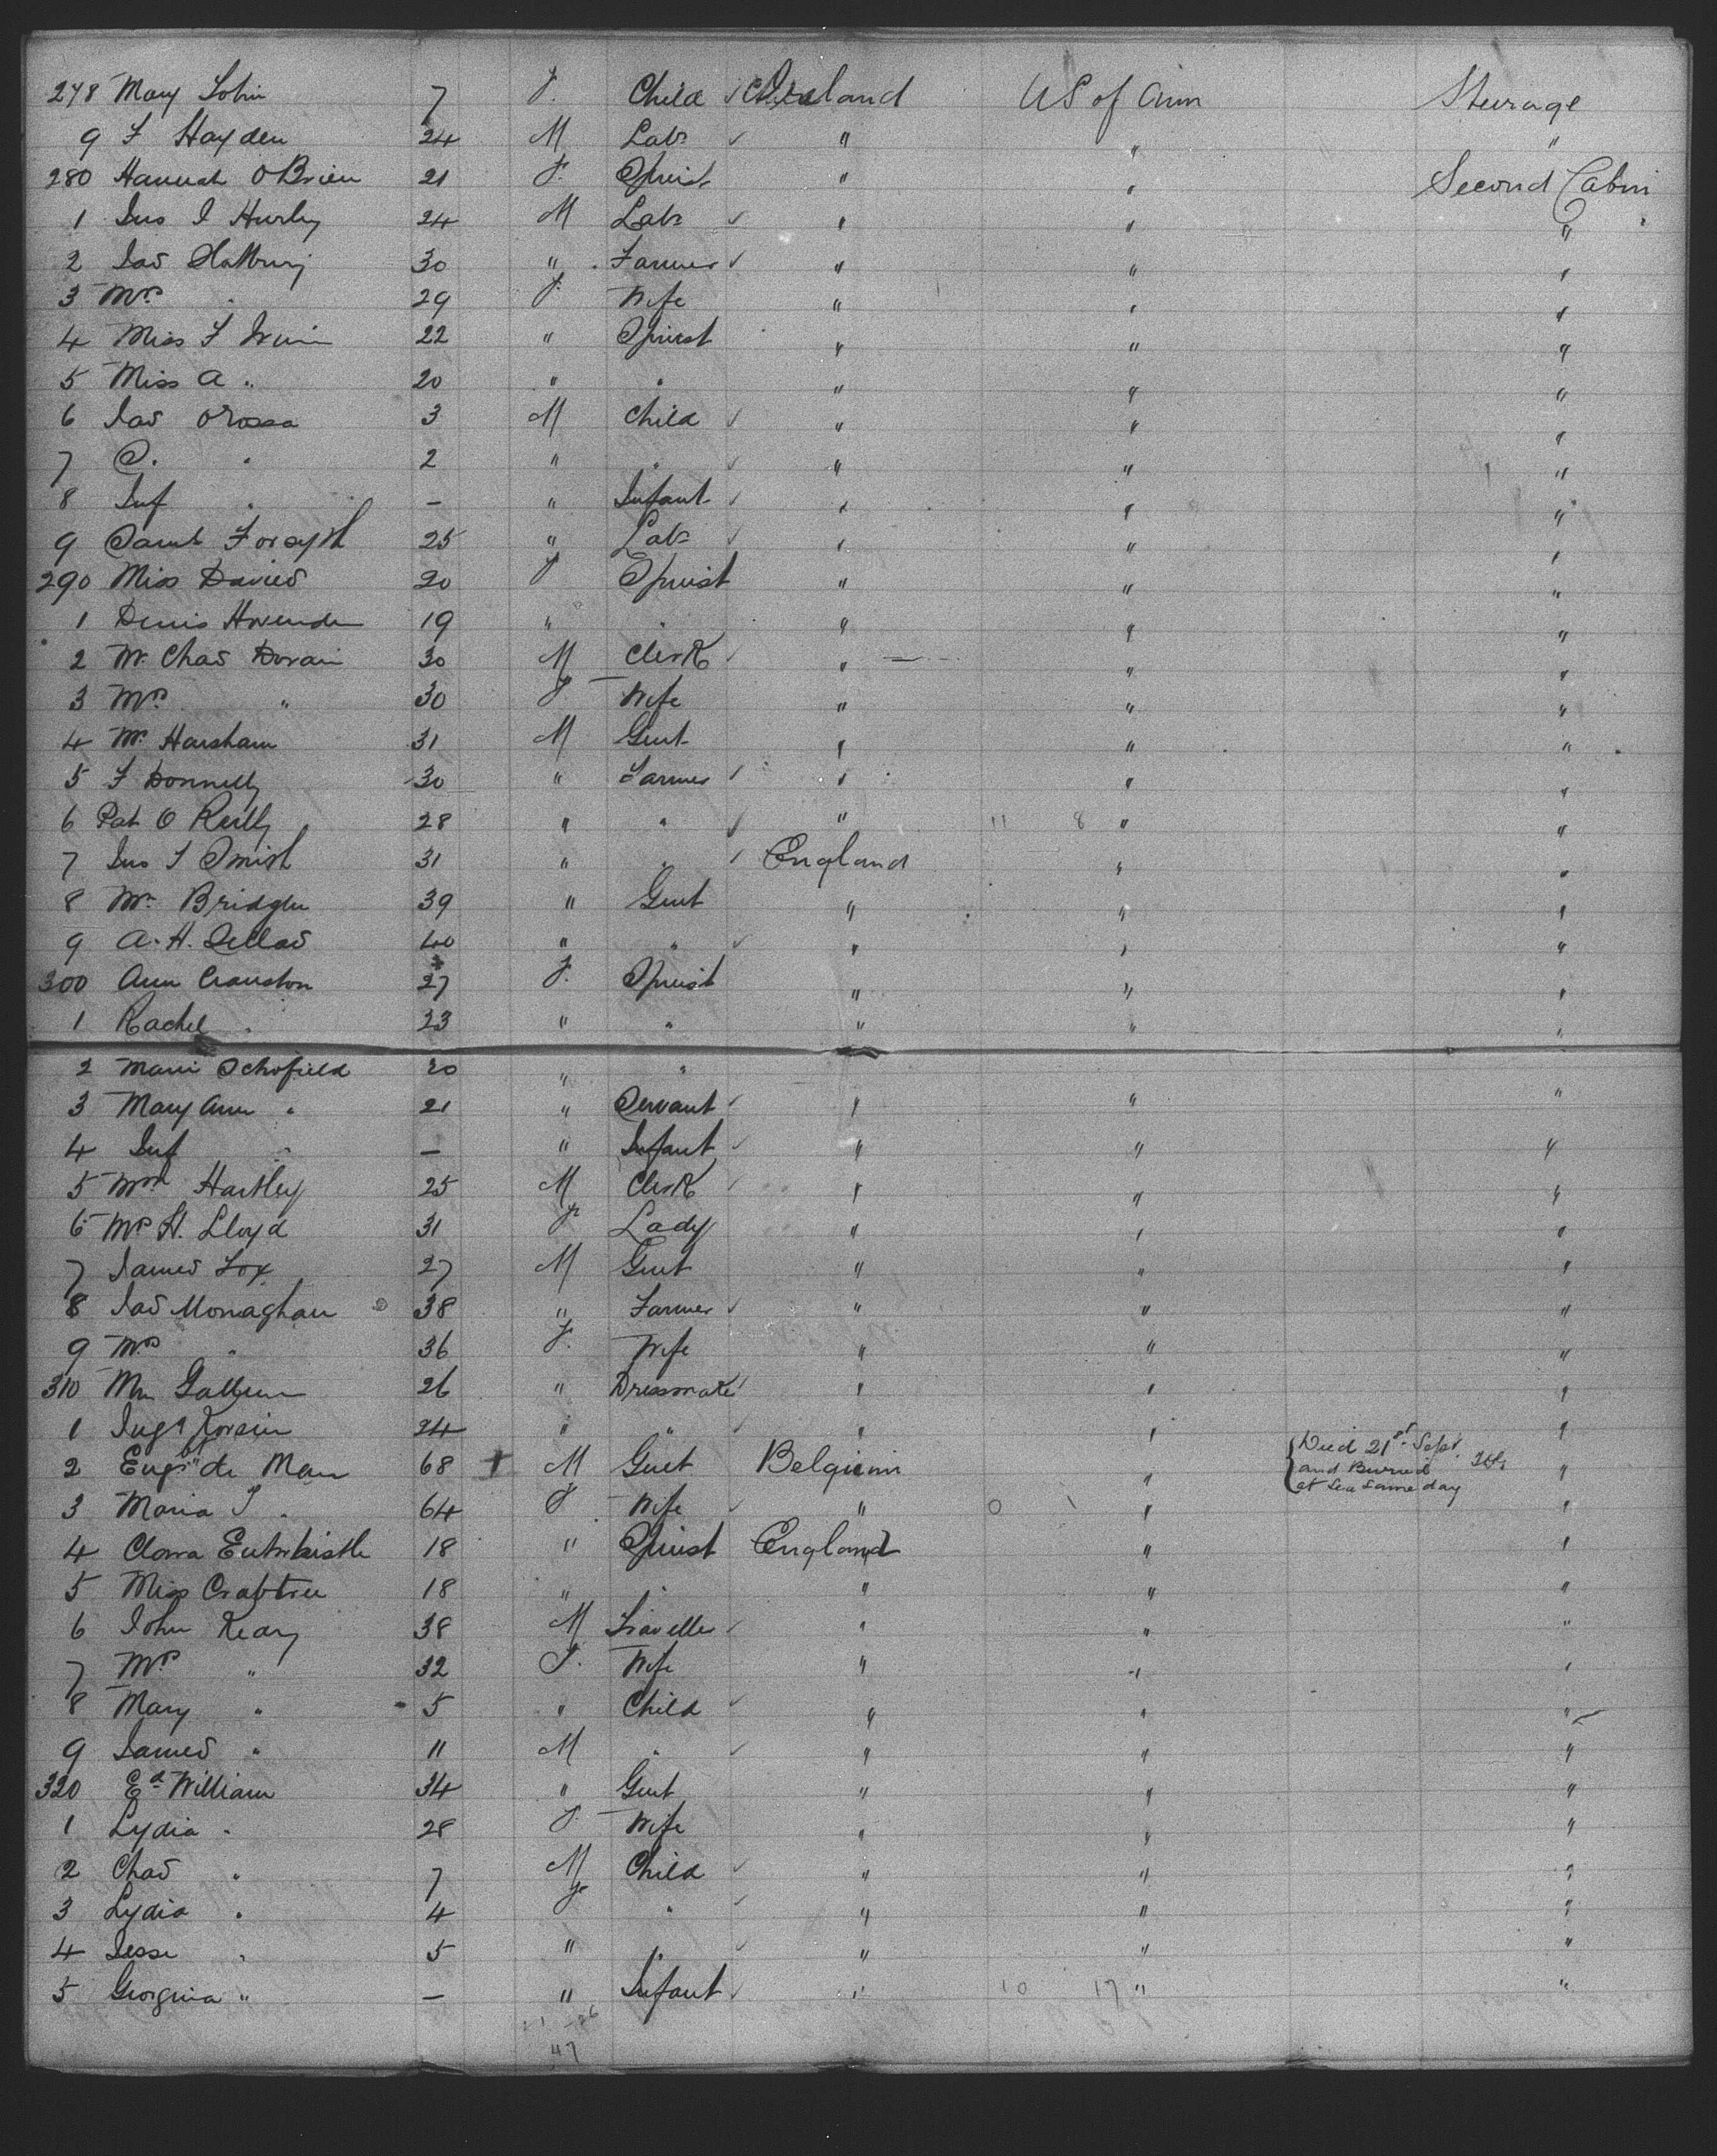 278 Mary Tobin 7 F. Child ✓ Ireland US of Am Steerage
9 F Hayden 24 M Labr ✓ " " "
280 Hannah O Brien 21 F. Spinst " " Second Cabin
1 Jno J Hurly 24 M Labr ✓ " " "
2 Jas 30 " Farmer ✓ " " "
3 Mrs " 29 F. Wife " " "
4 Miss F Irvin 22 " Spinst " " "
5 Miss A " 20 " " " " "
6 Jas O Rossa 3 M Child ✓ " " "
7 C. " 2 " " ✓ " " "
8 Inf " — " Infant ✓ " " "
9 Saml Forsyth 25 " Labr ✓ " " "
290 Miss Davies 20 F Spinst " " "
1 Denis 19 " " " " "
2 Mr Chas Dorain 30 M Clerk ✓ " " "
3 Mrs " 30 F Wife " " "
4 Mr Harsham 31 M Gent " " "
5 F Donnelly 30 " Farmer ✓ " " "
6 Pat O Reilly 28 " " ✓ " 11 8 " "
7 Jno T Smith 31 " " ✓ England " "
8 Mr Bridgen 39 " Gent " " "
9 A. H. Sellas 40 " " ✓ " " "
300 Ann Cranston 27 F. Spinst " " "
1 Rachel " 23 " " " " "
2 Marie Schofield 20 " "
3 Mary Ann " 21 " Servant ✓ " " "
4 Inf " — " Infant ✓ " " "
5 Wm Hartley 25 M Clerk ✓ " " "
6 Mrs H. Lloyd 31 F Lady " " "
7 James Fox 27 M Gent " " "
8 Jas Monaghan 38 " Farmer ✓ " " "
9 Mrs " 36 F. Wife " " "
310 26 " Dressmaker " " "
1 24 " " ✓ " " "
2 de Man 68 + M Gent Belgium " Died 21st Sept. and Buried at Sea Same day "
3 Maria T " 64 F. Wife ✓ " 0 1 " "
4 Clara Entwhistle 18 " Spinst England " "
5 Miss Crabtree 18 " " " " "
6 John Keary 38 M Traveller ✓ " " "
7 Mrs " 32 F. Wife " " "
8 Mary " 5 " Child ✓ " " "
9 James " 11 M " ✓ " " "
320 Ed William 34 " Gent " " "
1 Lydia " 28 F. Wife " " "
2 Chas " 7 M Child ✓ " " "
3 Lydia " 4 F " ✓ " " "
4 Jesse " 5 " " ✓ " " "
5 Georgina " — " Infant ✓ " 10 17 " "
47